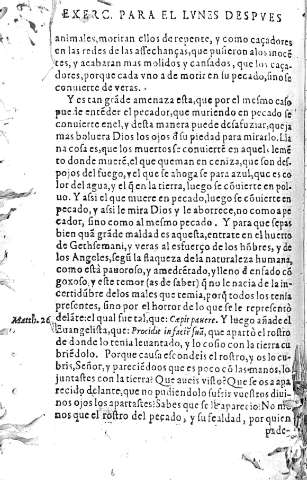 EXERC. PARA EL LVNES DESPVES
animales, moriran ellos de repente, y como caçadores
en las redes de las assechanças, que pusieron a los inocẽ
tes, y acabaran mas molidos y cansados, que los caça-
dores, porque cada vno a de morir en su pecado, sino se
conuierte de veras.
Y es tan grãde amenaza esta, que por el mesmo caso
puede entẽder el pecador, que muriendo en pecado se
conuierte en el, y desta manera puede desafuziar, que ja
mas boluera Dios los ojos d̃ su piedad para mirarlo. Lla
na cosa es, que los muertos se conuierten en aquel elemẽ
to donde murẽ, el que queman en ceniza, que son des-
pojos del fuego, y el que se ahoga se para azul, que es co
lor del agua, y el q̃ en la tierra, luego se cõuierte en pol-
uo. Y assi el que muere en pecado, luego se cõuierte en
pecado, y assi le mira Dios y le aborrece, no como a pe
cador, sino como al mesmo pecado. Y para que sepas
bien quã grãde maldad es aquesta, entrate en el huerto
de Gethsemani, y veras al esfuerço de los hõbres, y de
los Angeles, segũ la flaqueza dela naturaleza humana,
como està pauoroso, y amedrẽtado, y lleno d̃ ensado cõ
goxoso, y este temor (as de saber) q̃ no le nacia de la in-
certidũbre delos males que temia, porq̃ todos los tenia
presentes, sino por el horror de lo que se le representò
delãte: el qual fue tal, que: Cæpit pauere. Y luego añade el
Matth. 26.
Euangelista, que: Procidit in faciẽ suã, que apartò el rostro
de donde lo tenia leuantado, y lo cosio con la tierra cu
briẽdolo. Porque causa escondeis el rostro, y os lo cu-
bris, Señor, y pareciẽdoos que es poco cõ las manos, lo
juntastes con la tierra? Que aueis visto? Que se os a apa
recido delante, que no pudiendolo sufrir vuestros diui-
nos ojos los apartastes? Sabes que se le aparecio? No me
nos que el rostro del pecado, y su fealdad, por quien
pade-